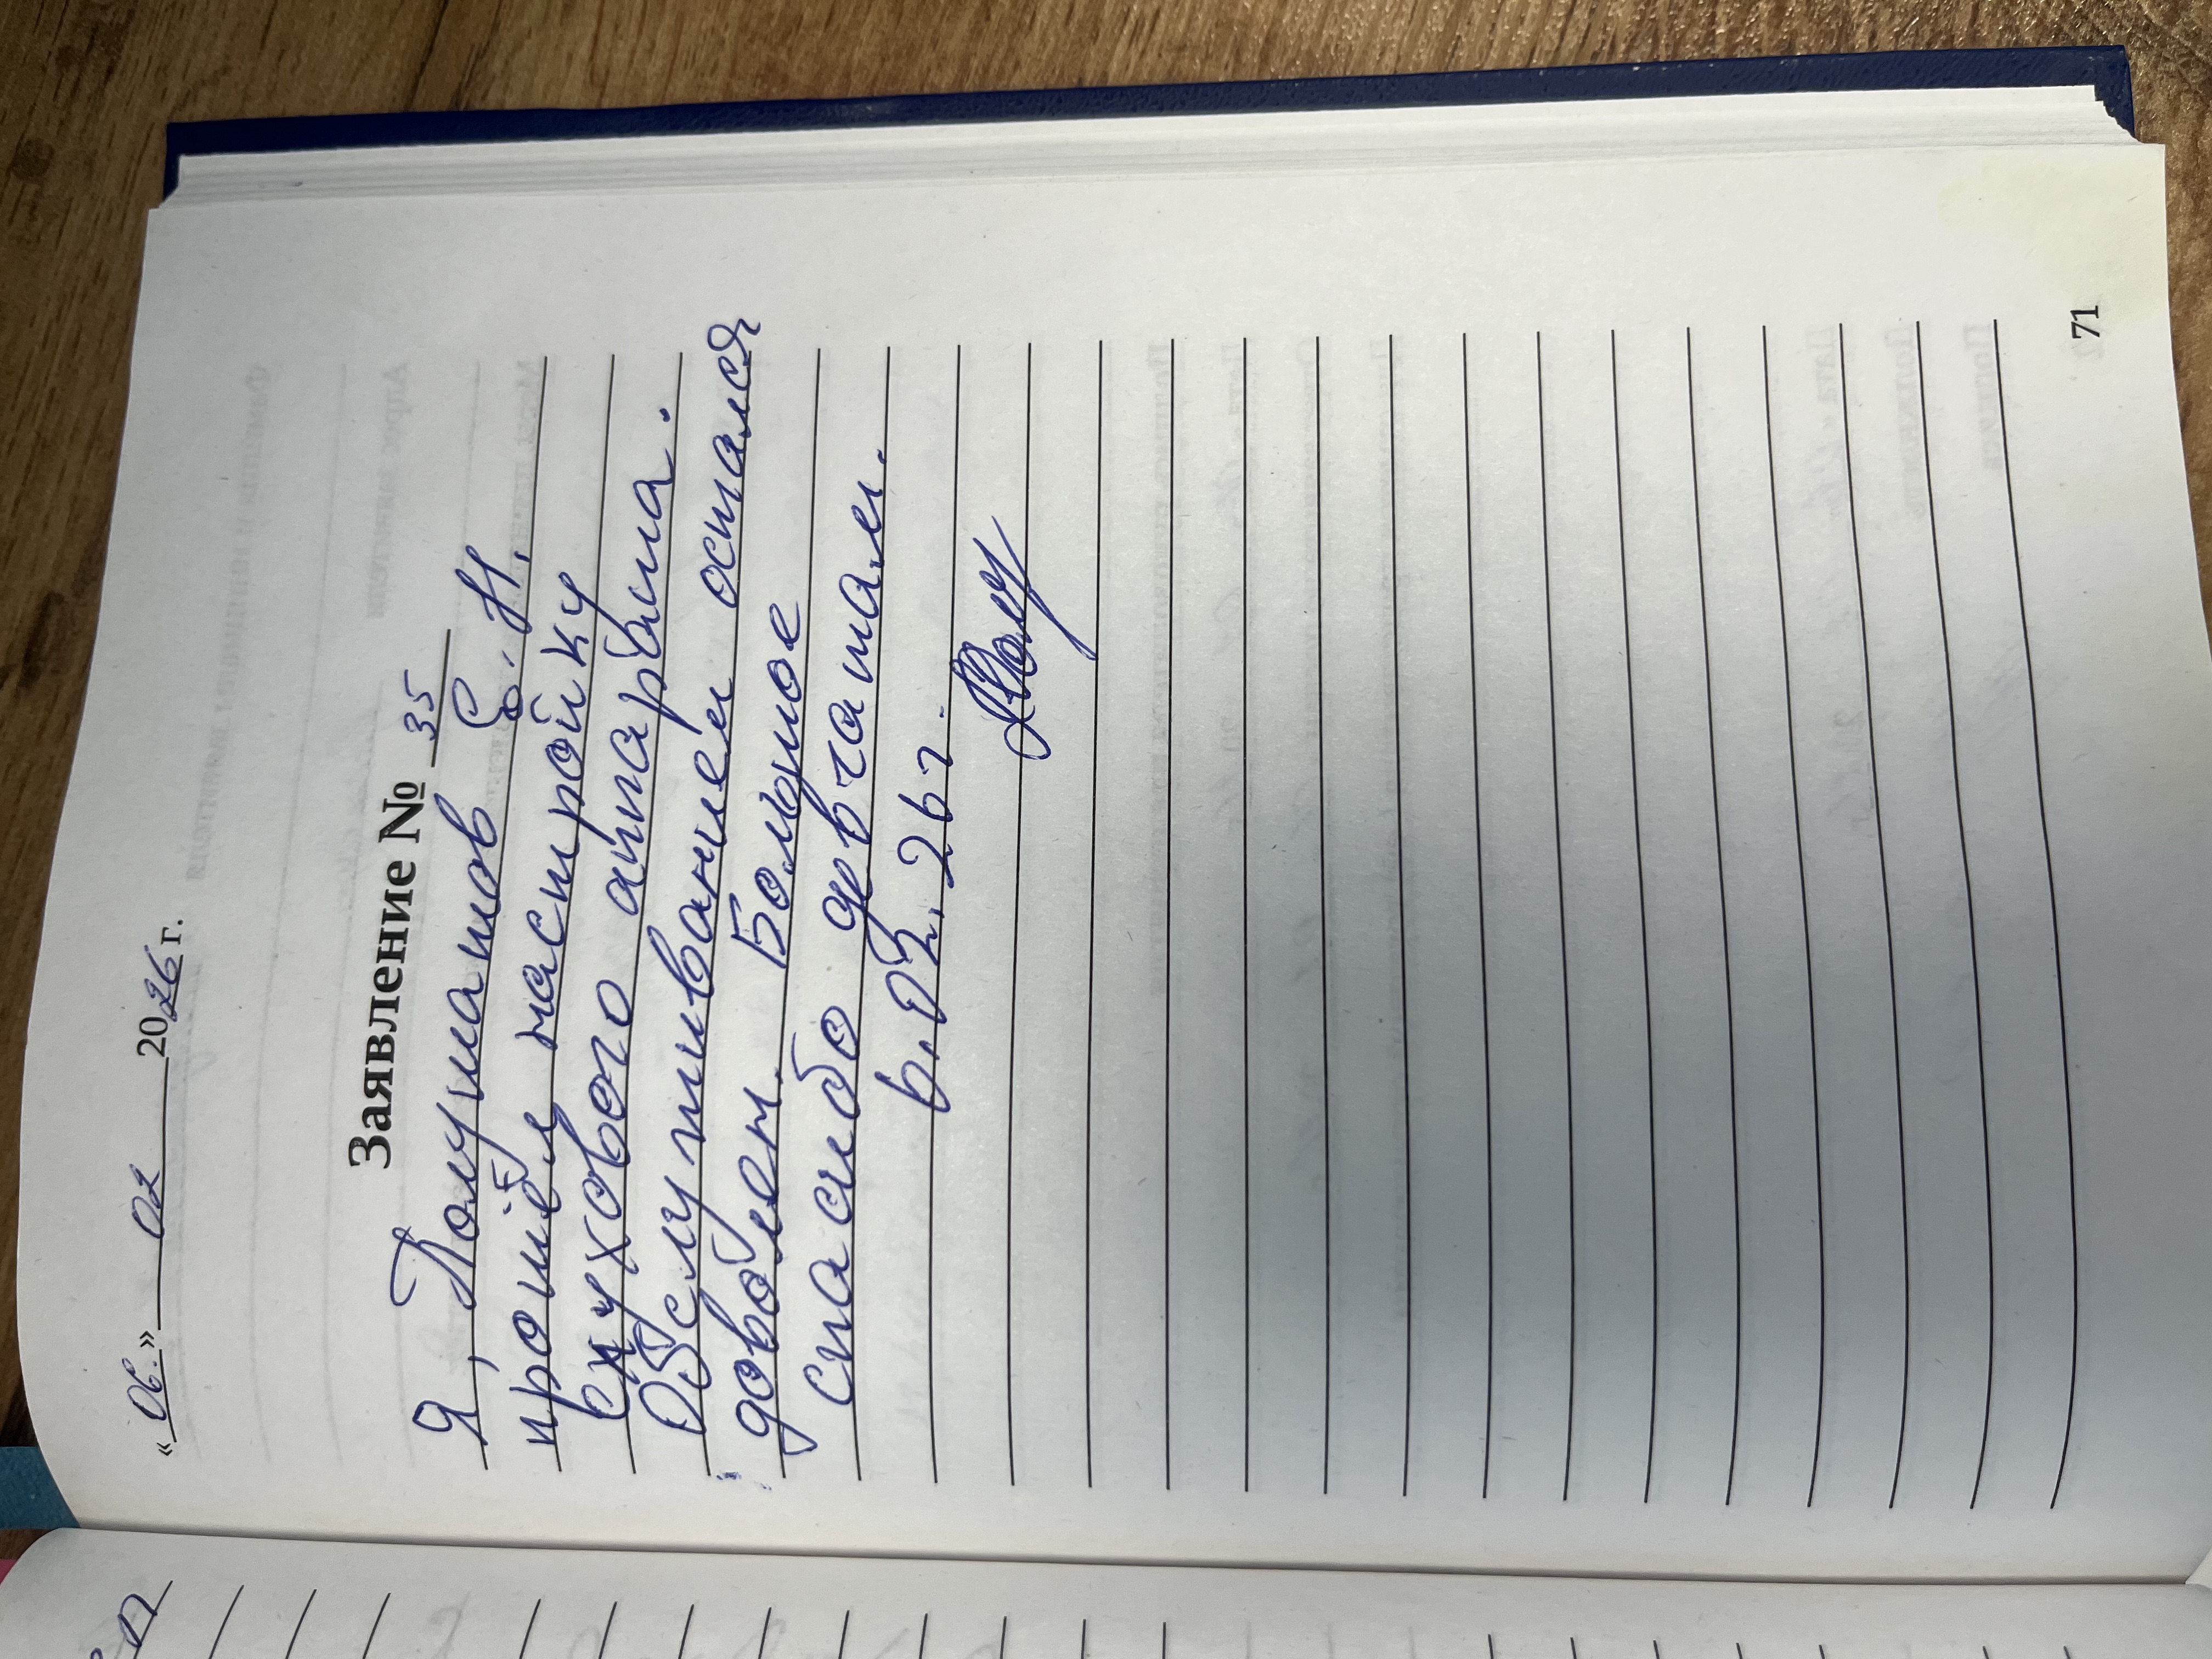 «06.» 02 2026 г.
Заявление № 35
Я, Полушатов С. Н.
прошёл настройку
слухового аппарата.
Обслуживанием остался
доволен. Большое
спасибо девчатам.
6.02.26 г.
71